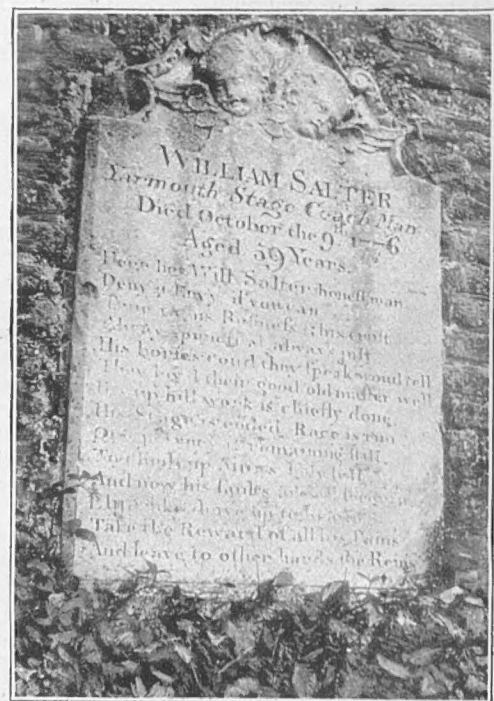 WILLIAM SALTER
Yarmouth Stage Coach Man
Died October the 9th
Aged 59 Years.
Here lies Will Salter honest man
Deny it Envy if you can
his Business & his trust
Always punctual always just
His horses coud they speak woud tell
They lov'd their good old master well
His up hill work is chiefly done
His Stage is ended Race is run
One journey is remaining still
To climb up Sions holy hill
And now his faults are all forgiv'n
Elija like drive up to heaven
Take the Reward of all his Pains
And leave to other hands the Reins